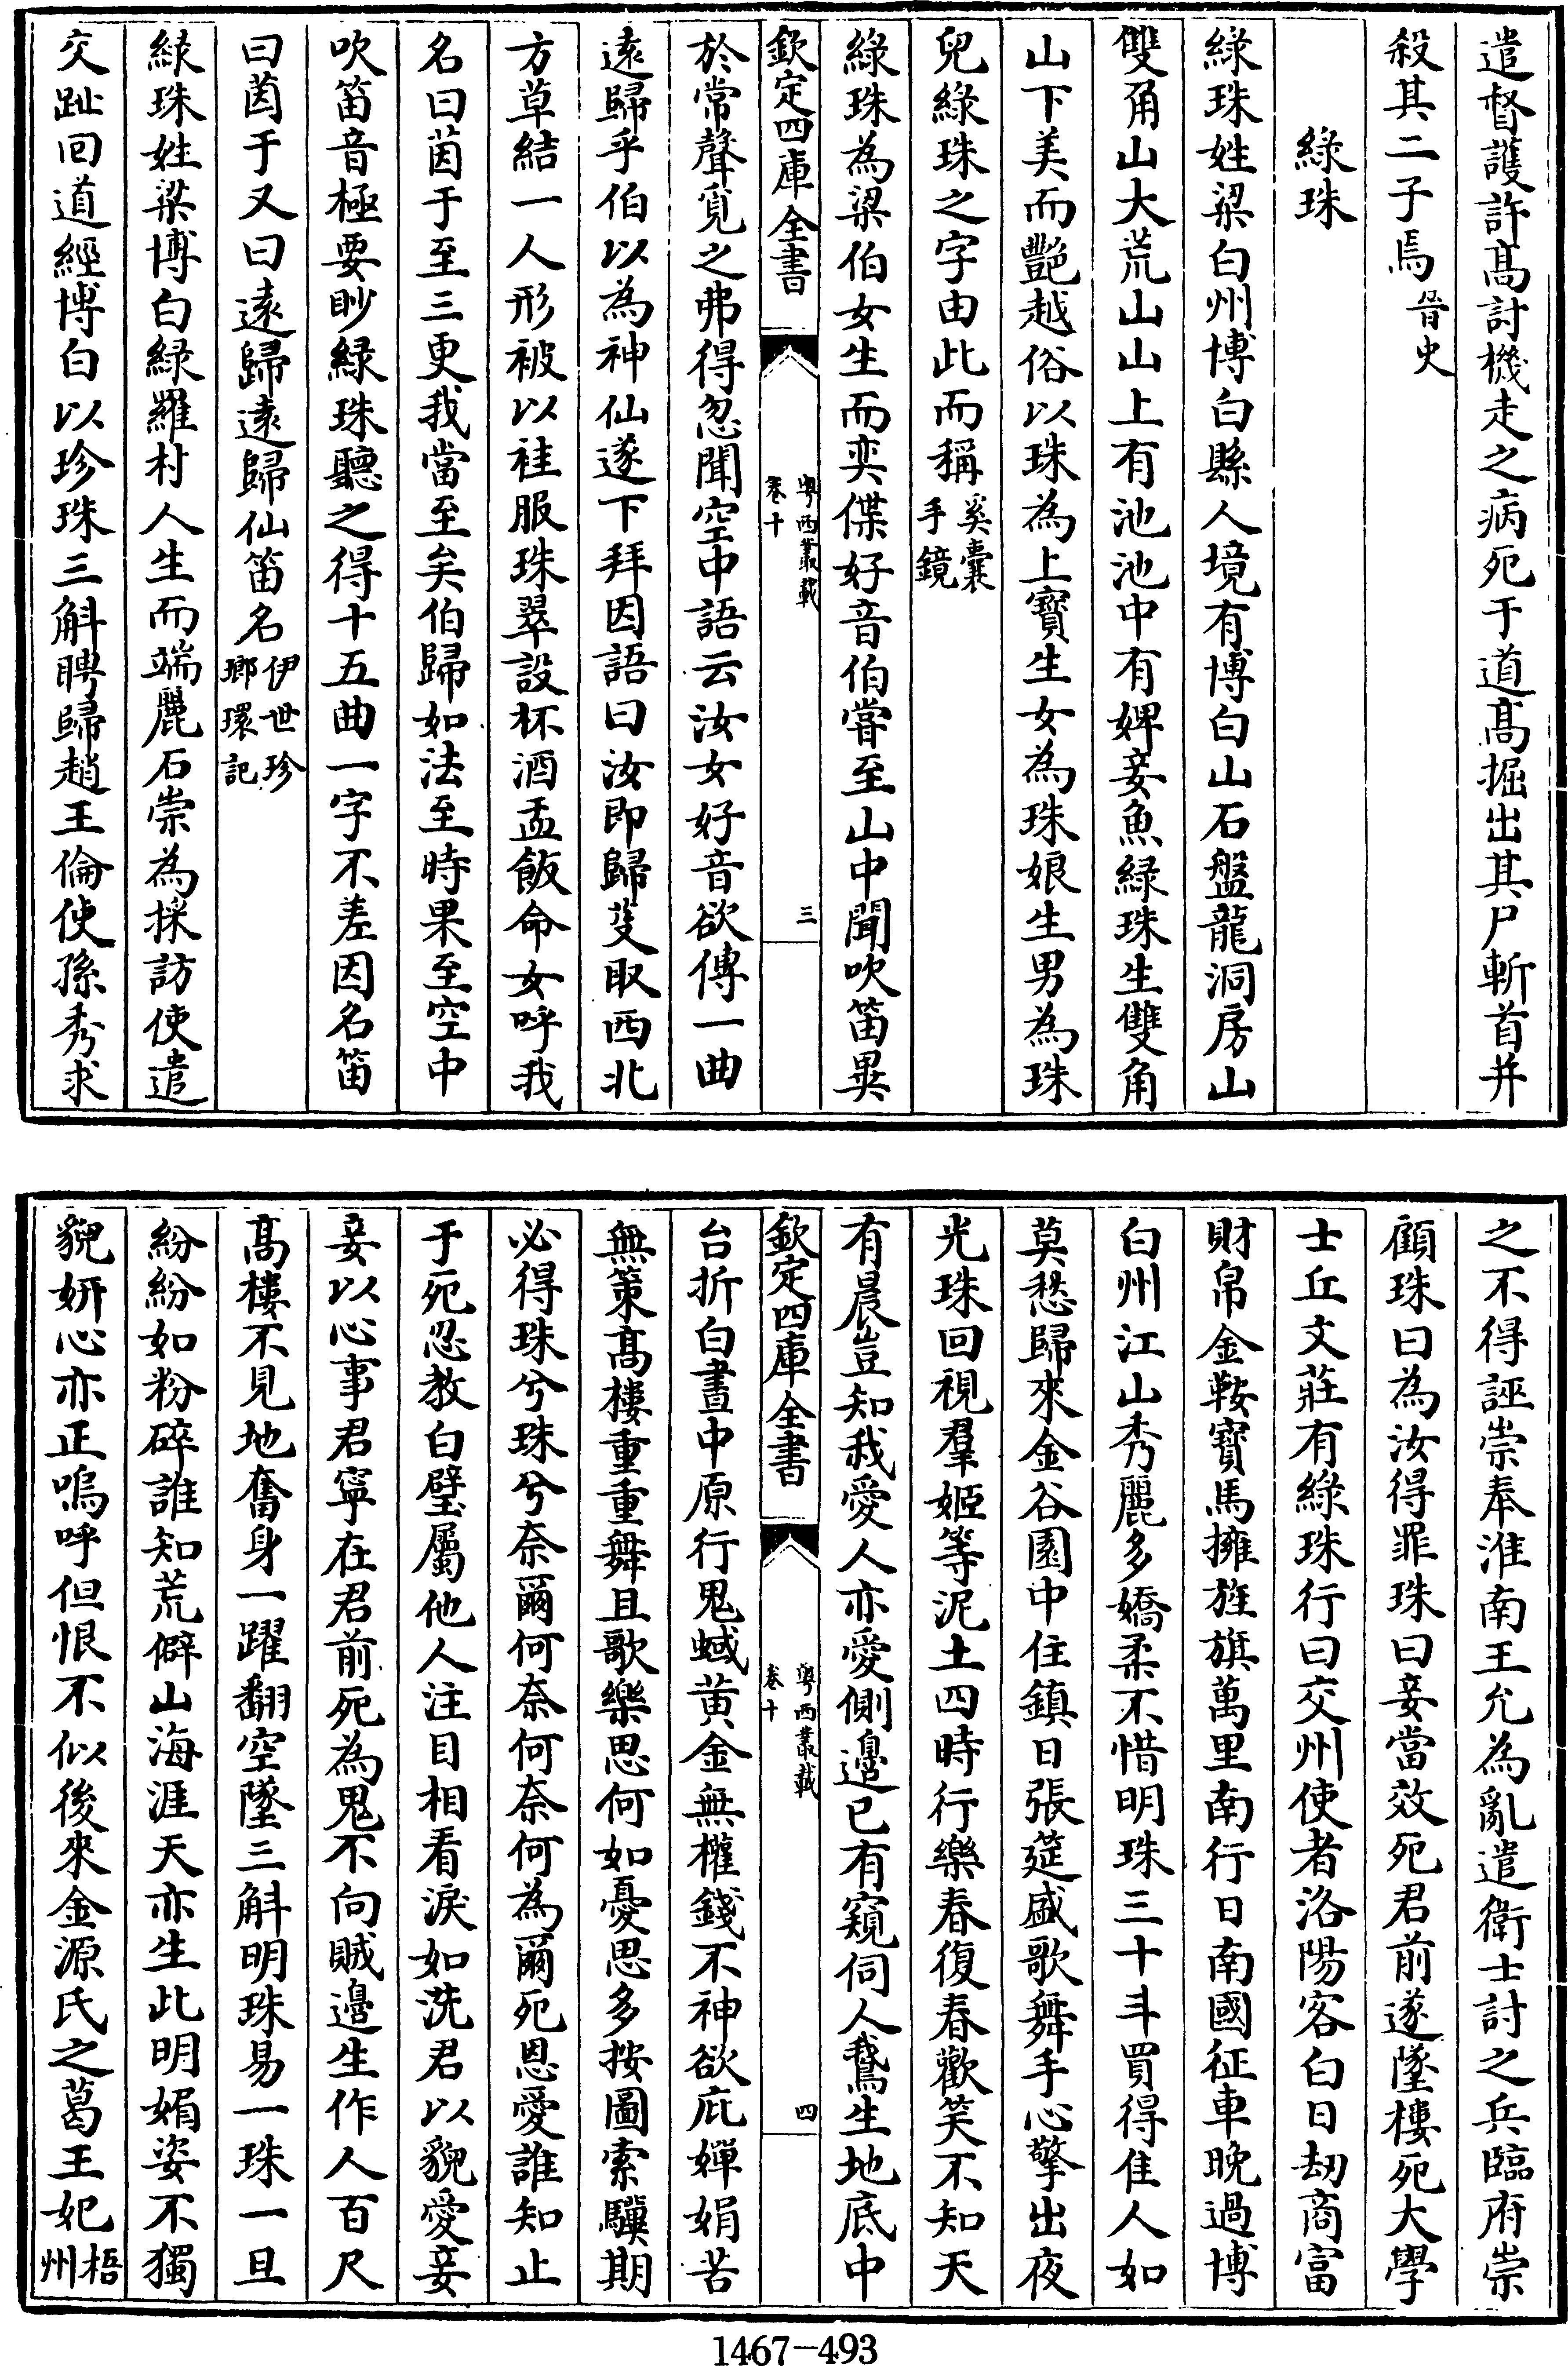 遣督護許髙討機走之病死于道髙掘出其尸斬首并
殺其二子焉晉史
綠珠
綠珠姓梁白州博白縣人境有博白山石盤龍洞房山
雙角山大荒山山上有池池中有婢妾魚綠珠生雙角
山下美而艷越俗以珠為上寶生女為珠娘生男為珠
兒綠珠之字由此而稱奚囊手鏡
綠珠為梁伯女生而奕偞好音伯嘗至山中聞吹笛異
欽定四庫全書
粤西叢載
卷十
三
於常聲覓之弗得忽聞空中語云汝女好音欲傳一曲
遠歸乎伯以為神仙遂下拜因語曰汝即歸芟取西北
方草結一人形被以袿服珠翠設杯酒盂飯命女呼我
名曰茵于至三更我當至矣伯歸如法至時果至空中
吹笛音極要眇綠珠聽之得十五曲一字不差因名笛
曰茵于又曰遠歸遠歸仙笛名伊世珍瑯環記
綠珠姓梁博白綠羅村人生而端麗石崇為採訪使遣
交趾回道經博白以珍珠三斛聘歸趙王倫使孫秀求
之不得誣崇奉淮南王允為亂遣衛士討之兵臨府崇
顧珠曰為汝得罪珠曰妾當效死君前遂墜樓死大學
士丘文莊有綠珠行曰交州使者洛陽客白日刼商富
財帛金鞍寶馬擁旌旗萬里南行日南國征車晚過博
白州江山秀麗多嬌柔不惜明珠三十斗買得佳人如
莫愁歸來金谷園中住鎮日張筵盛歌舞手心擎出夜
光珠回視羣姬等泥土四時行樂春復春歡笑不知天
有晨豈知我愛人亦愛側邉已有窺伺人鵞生地底中
欽定四庫全書
粤西叢載
卷十
四
台折白晝中原行鬼蜮黄金無權錢不神欲庇嬋娟苦
無策髙樓重重舞且歌樂思何如憂思多按圖索驥期
必得珠兮珠兮奈爾何奈何奈何為爾死恩愛誰知止
于死忍教白璧屬他人注目相看淚如洗君以貌愛妾
妾以心事君寧在君前死為鬼不向賊邉生作人百尺
髙樓不見地奮身一躍翻空墜三斛明珠易一珠一旦
紛紛如粉碎誰知荒僻山海涯天亦生此明媚姿不獨
貌妍心亦正嗚呼但恨不似後來金源氏之葛王妃梧州
1467-493